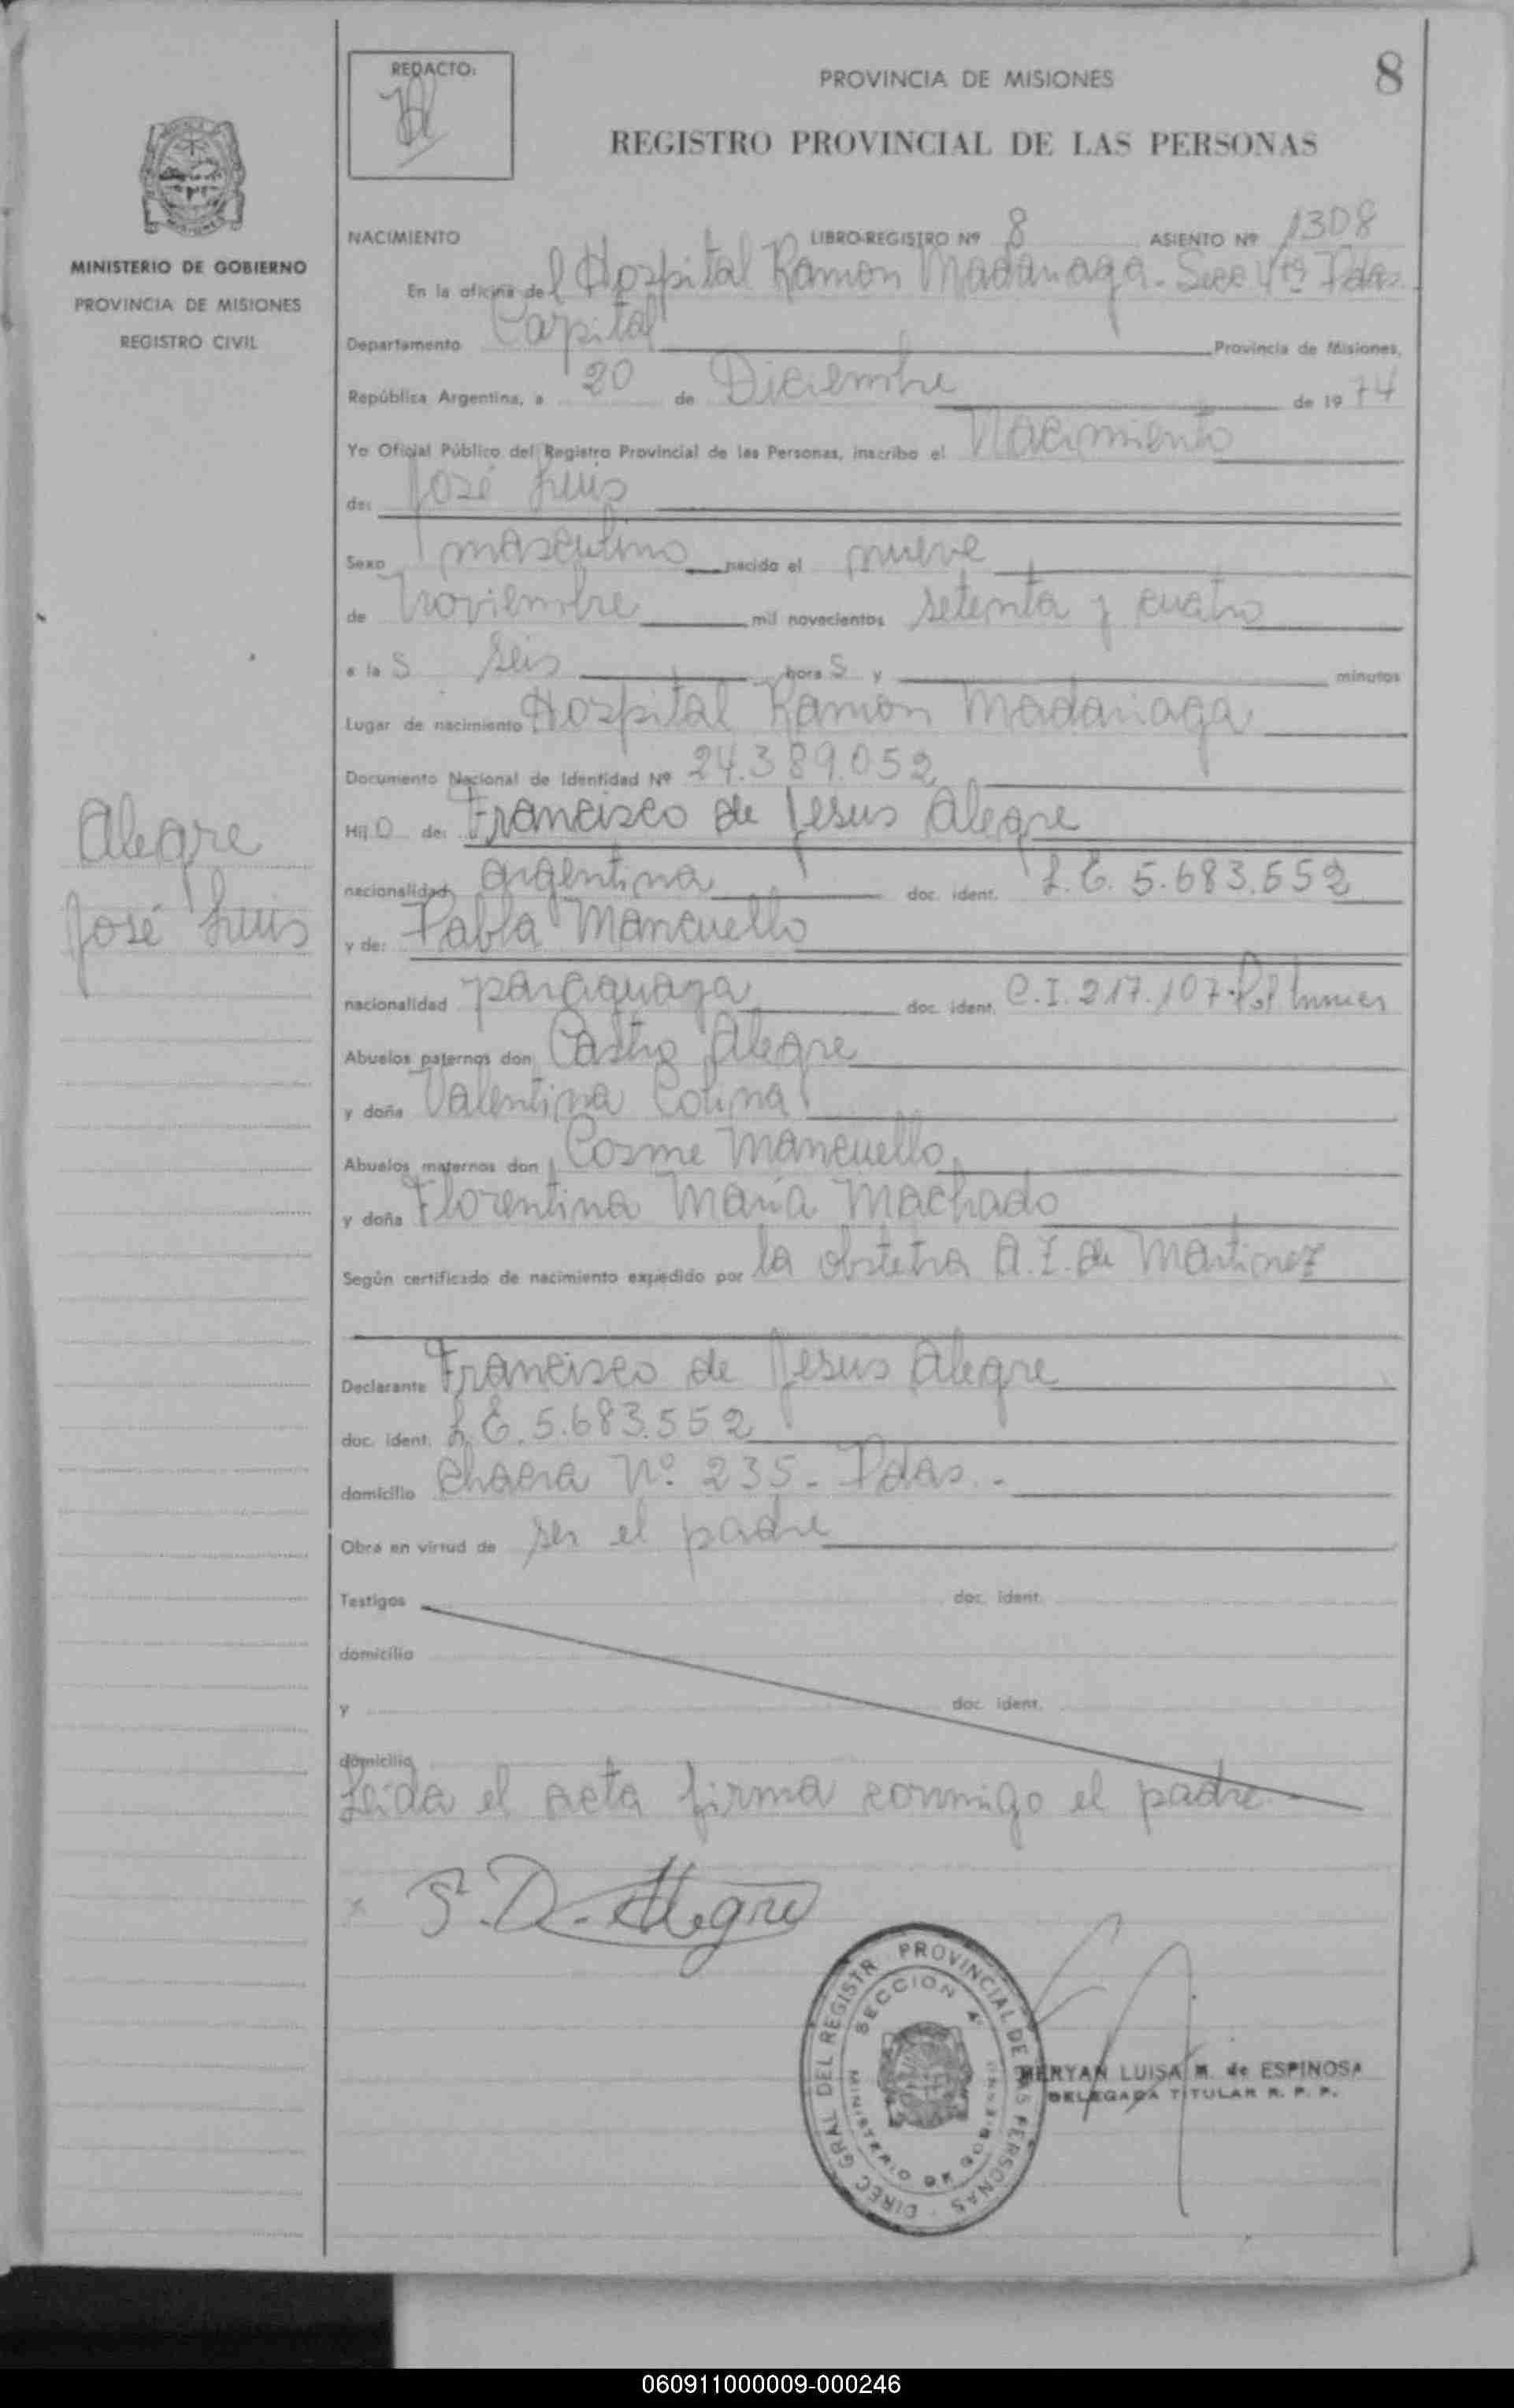 REDACTO:
PROVINCIA DE MISIONES
8
REGISTRO PROVINCIAL DE LAS PERSONAS
MINISTERIO DE GOBIERNO
PROVINCIA DE MISIONES
REGISTRO CIVIL
NACIMIENTO LIBRO-REGISTRO Nº 8 ASIENTO Nº 1308
En la oficina del Hospital Ramon Madariaga - Secc 4ta Pdas.
Departamento Capital Provincia de Misiones,
República Argentina, a 20 de Diciembre de 1974
Yo Oficial Público del Registro Provincial de las Personas, inscribo el Nacimiento
de: José Luis
Sexo masculino nacido el nueve
de Noviembre mil novecientos setenta y cuatro
a las seis horas y minutos
Lugar de nacimiento Hospital Ramon Madariaga
Documento Nacional de Identidad Nº 24.389.052
Hijo de: Francisco de Jesus Alegre
nacionalidad argentina doc. ident. L.E. 5.683.552
y de: Pabla Mancuello
nacionalidad paraguaya doc. ident. C.I. 217.107
Abuelos paternos don Castro Alegre
y doña Valentina
Abuelos maternos don Cosme Mancuello
y doña Florentina María Machado
Según certificado de nacimiento expedido por la obstetra A.Z. de Martinez
Declarante Francisco de Jesus Alegre
doc. ident. L.E. 5.683.552
domicilio Chacra Nº 235 - Pdas. -
Obra en virtud de ser el padre
Testigos doc. ident.
domicilio
y doc. ident.
domicilio
Leida el acta firma conmigo el padre
Alegre
José Luis
x F. D. Alegre
DIREC GRAL DEL REGISTR PROVINCIAL DE LAS PERSONAS
SECCION 4ª
MINISTERIO DE GOBIERNO
MERYAN LUISA M. de ESPINOSA
DELEGADA TITULAR R. P. P.
060911000009-000246